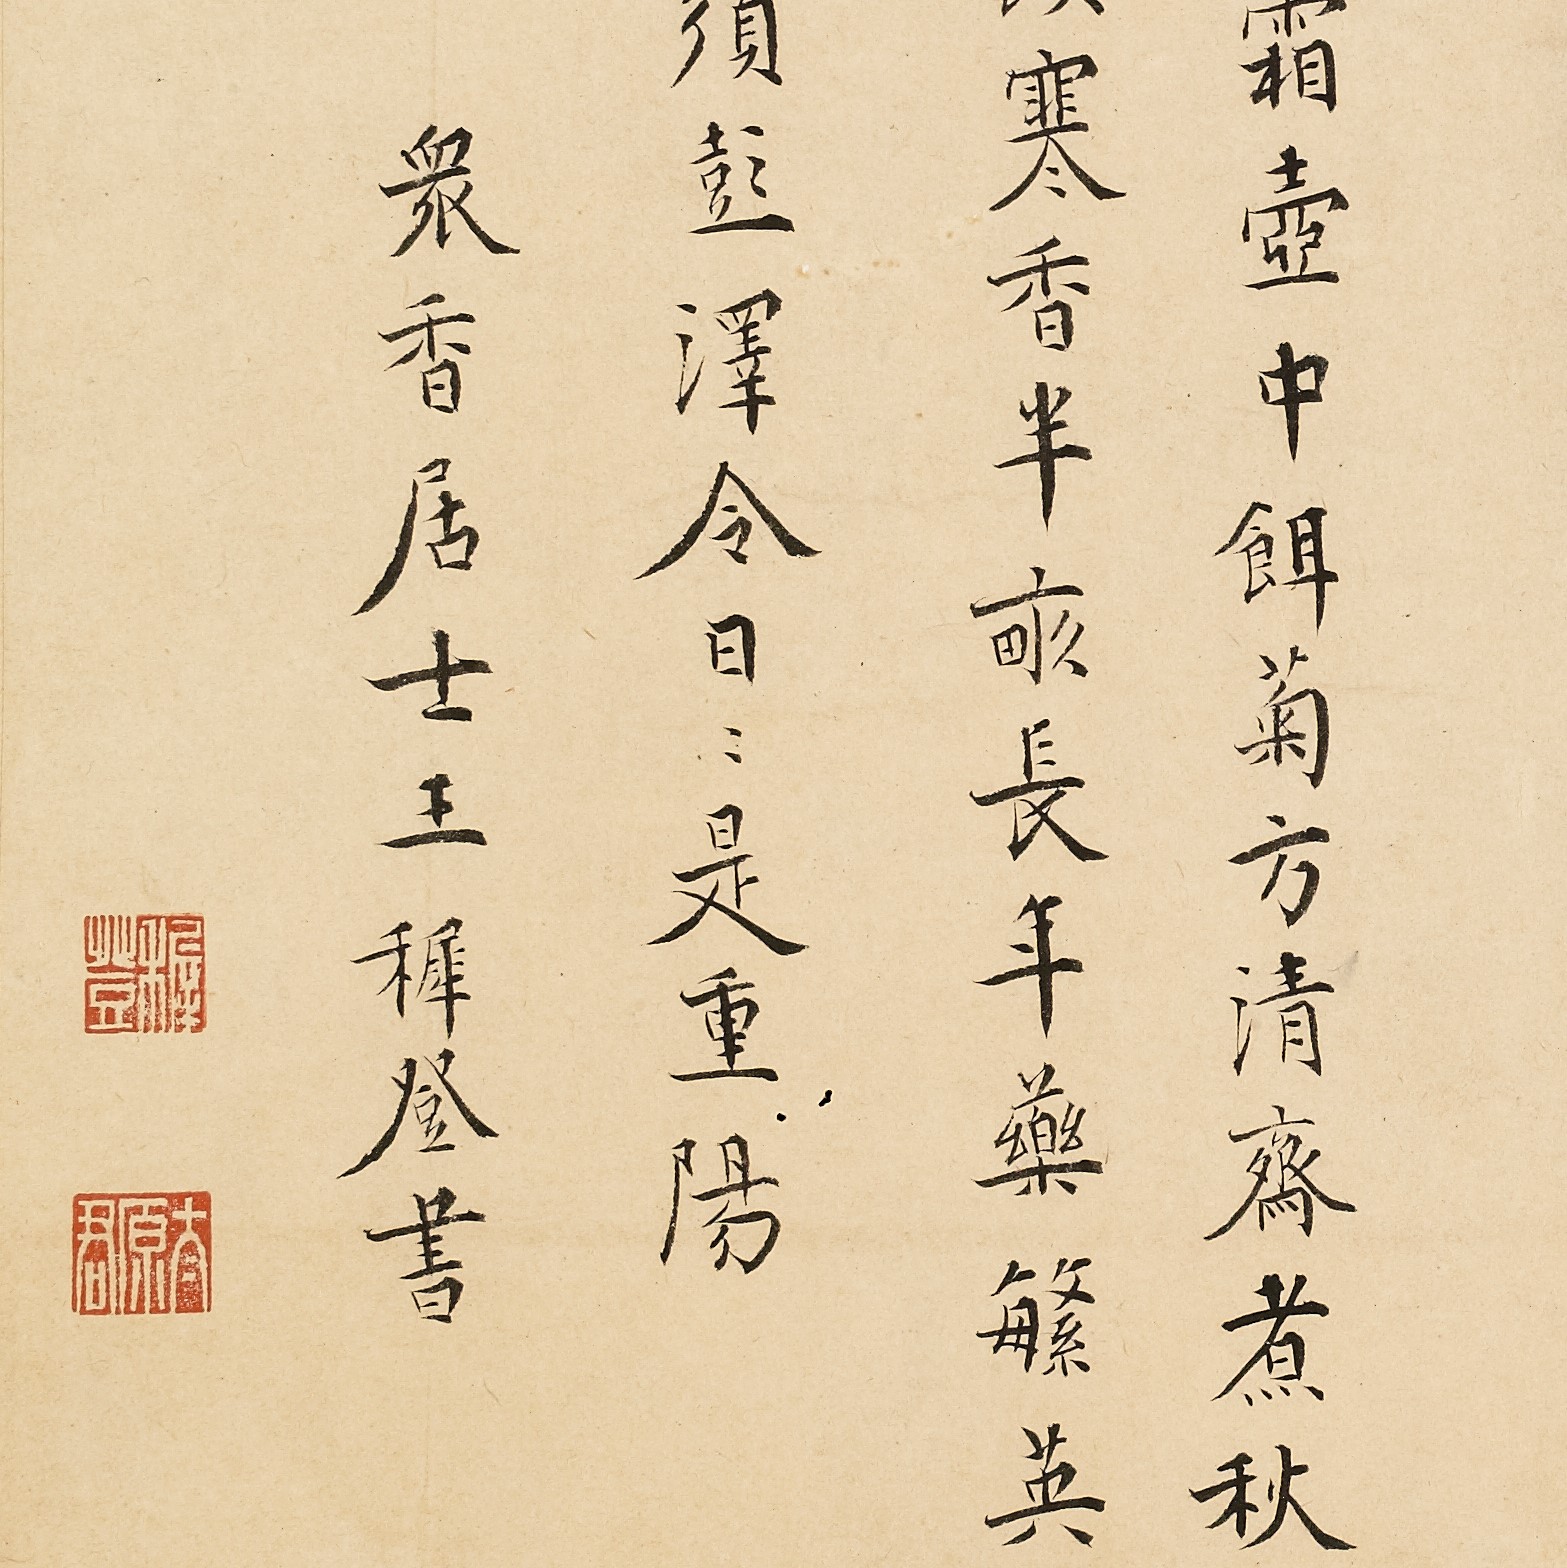 霜壺中餌菊方清齋煮秋
寒香半畝長年藥繁英
須彭澤令日〻是重陽
衆香居士王穉登書
穉登
太原君